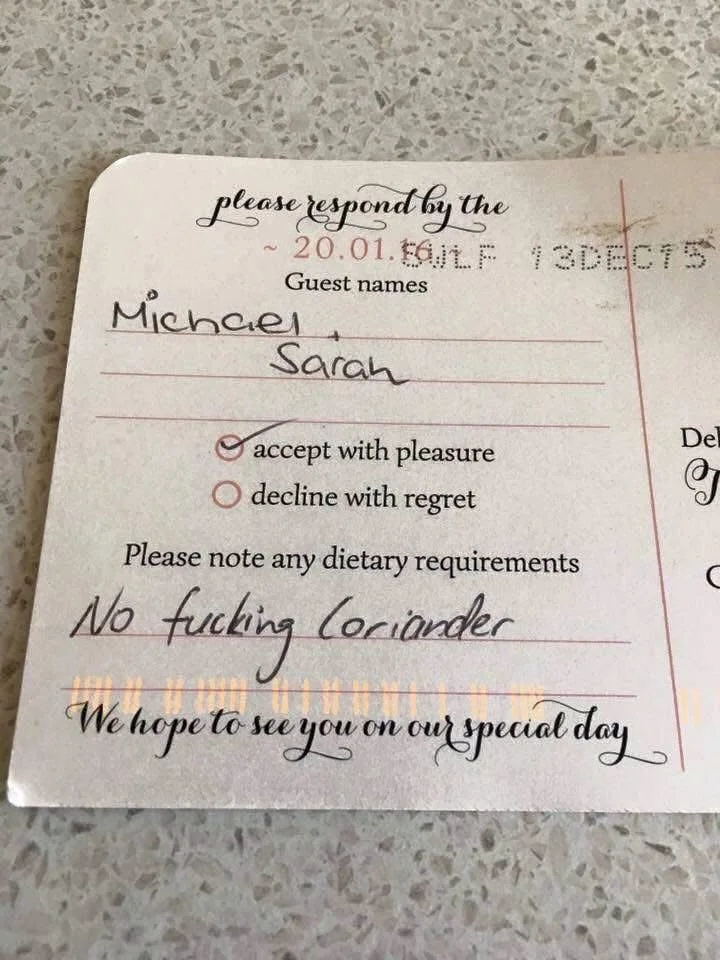 please respond by the
~ 20.01.16 ~
13DEC15
Guest names
Michael +
Sarah
accept with pleasure
decline with regret
Please note any dietary requirements
No fucking Coriander
We hope to see you on our special day
Del